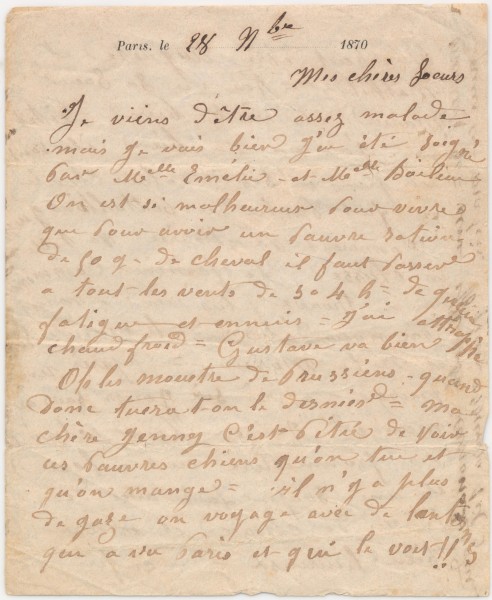 Paris, le 28 Nbre 1870
Mes chères Soeurs
Je viens d'être assez malade
mais je vais bien j'ai été soigné
par Melle Emélie et Melle
On est si malheureux pour vivre
que pour avoir un pauvre ration
de 50 g. de cheval il faut passer
a tout les vents de 3 a 4 h =
fatigue et ennuis = J'ai attrappé
chaud froid = Gustave va bien
Oh les monstre de Prussiens. quand
donc tuera t-on le dernier = ma
chère Jenney c'est pitié de voir
ces pauvres chiens qu'on tue et
qu'on mange = il n'y a plus
de gaze on voyage avec de lanternes
qui a vu Paris et qui le voit!!